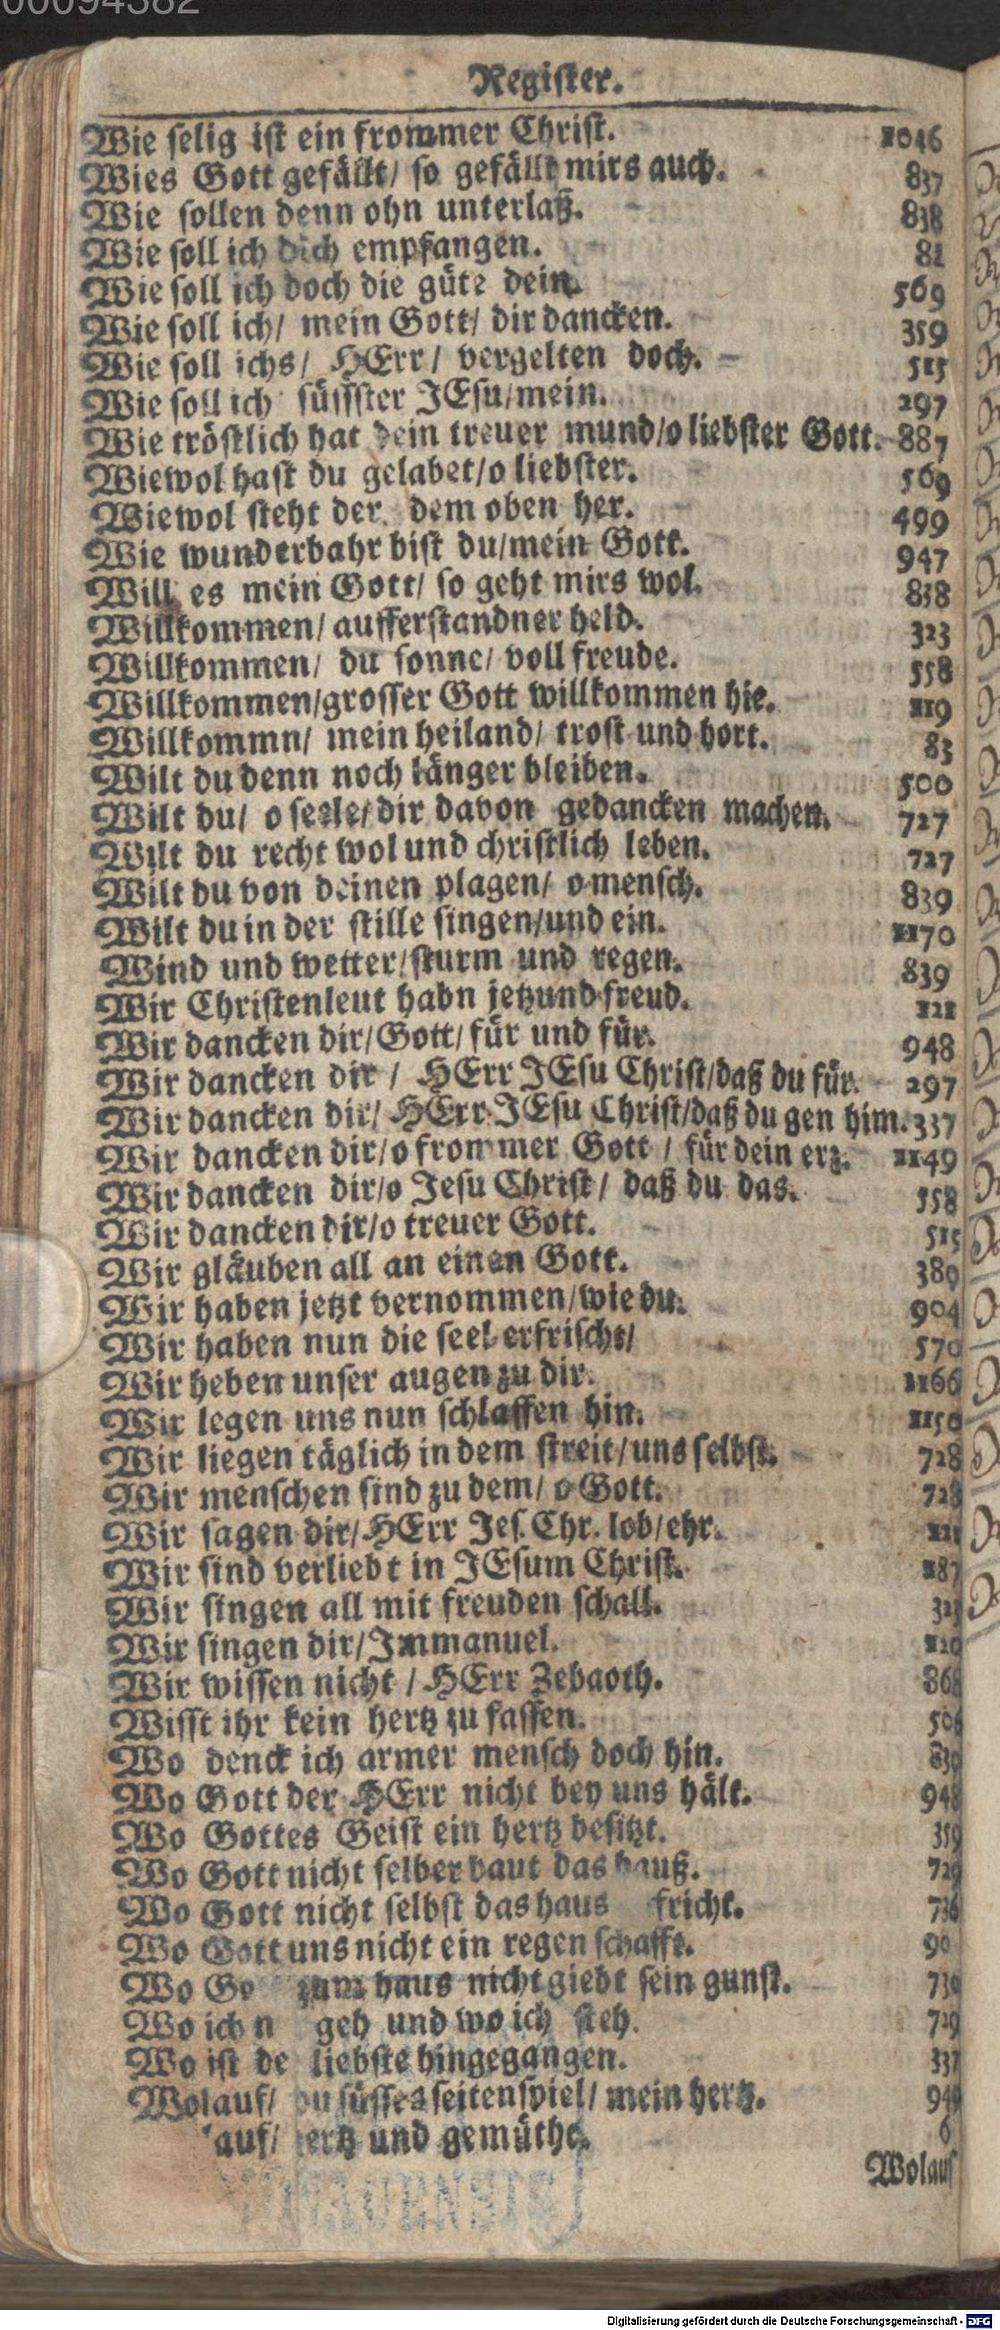 00094382
Register.
Wie selig ist ein frommer Christ. 1046
Wies Gott gefällt/ so gefällt mirs auch. 837
Wie sollen denn ohn unterlaß. 838
Wie soll ich dich empfangen. 81
Wie soll ich doch die güte dein. 569
Wie soll ich/ mein Gott/ dir dancken. 359
Wie soll ichs/ HErr/ vergelten doch. 515
Wie soll ich süssster JEsu/mein. 297
Wie tröstlich hat dein treuer mund/o liebster Gott. 887
Wiewol hast du gelabet/o liebster. 569
Wiewol steht der dem oben her. 499
Wie wunderbahr bist du/mein Gott. 947
Will es mein Gott/ so geht mirs wol. 838
Willkommen/ aufferstandner held. 323
Willkommen/ du sonne/ voll freude. 558
Willkommen/grosser Gott willkommen hie. 119
Willkommn/ mein heiland/ trost und hort. 83
Wilt du denn noch länger bleiben. 500
Wilt du/ o seele/dir davon gedancken machen. 727
Wilt du recht wol und christlich leben. 727
Wilt du von deinen plagen/ o mensch. 839
Wilt du in der stille singen/und ein. 1170
Wind und wetter/sturm und regen. 839
Wir Christenleut habn jetzund freud. 121
Wir dancken dir/Gott/für und für. 948
Wir dancken dir / HErr JEsu Christ/daß du für. 297
Wir dancken dir/ HErr JEsu Christ/daß du gen him. 337
Wir dancken dir/o frommer Gott / für dein erz. 1149
Wir dancken dir/o Jesu Christ/ daß du das. 558
Wir dancken dir/o treuer Gott. 515
Wir gläuben all an einen Gott. 389
Wir haben jetzt vernommen/wie du. 904
Wir haben nun die seel erfrischt/ 570
Wir heben unser augen zu dir. 1166
Wir legen uns nun schlaffen hin. 1150
Wir liegen täglich in dem streit/uns selbst. 728
Wir menschen sind zu dem/ o Gott. 728
Wir sagen dir/HErr Jes. Chr. lob/ehr.
Wir sind verliebt in JEsum Christ. 187
Wir singen all mit freuden schall. 323
Wir singen dir/Immanuel. 120
Wir wissen nicht / HErr Zebaoth. 868
Wisst ihr kein hertz zu fassen.
Wo denck ich armer mensch doch hin. 839
Wo Gott der HErr nicht bey uns hält. 948
Wo Gottes Geist ein hertz besitzt. 359
Wo Gott nicht selber baut das hauß. 729
Wo Gott nicht selbst das haus fricht. 736
Wo Gott uns nicht ein regen schafft. 90
Wo Go zum haus nicht giebt sein gunst. 730
Wo ich n geh und wo ich steh. 729
Wo ist de liebste hingegangen. 337
Wolauf/ du süsses seitenspiel/ mein hertz. 949
auf/ ertz und gemüthe. 6
Wolauf
Digitalisierung gefördert durch die Deutsche Forschungsgemeinschaft - DFG